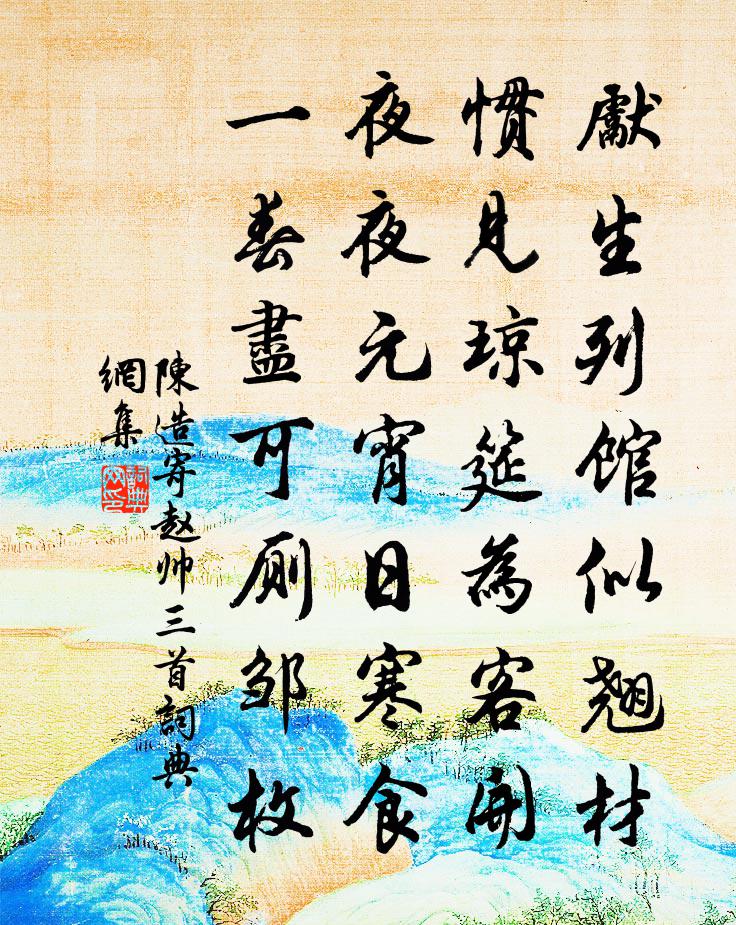 獻生列馆似翘材
慣見琼筵為客開
夜夜元宵日寒食
一春盡可厕邹枚
陳造寄赵帅三首詞典
網集